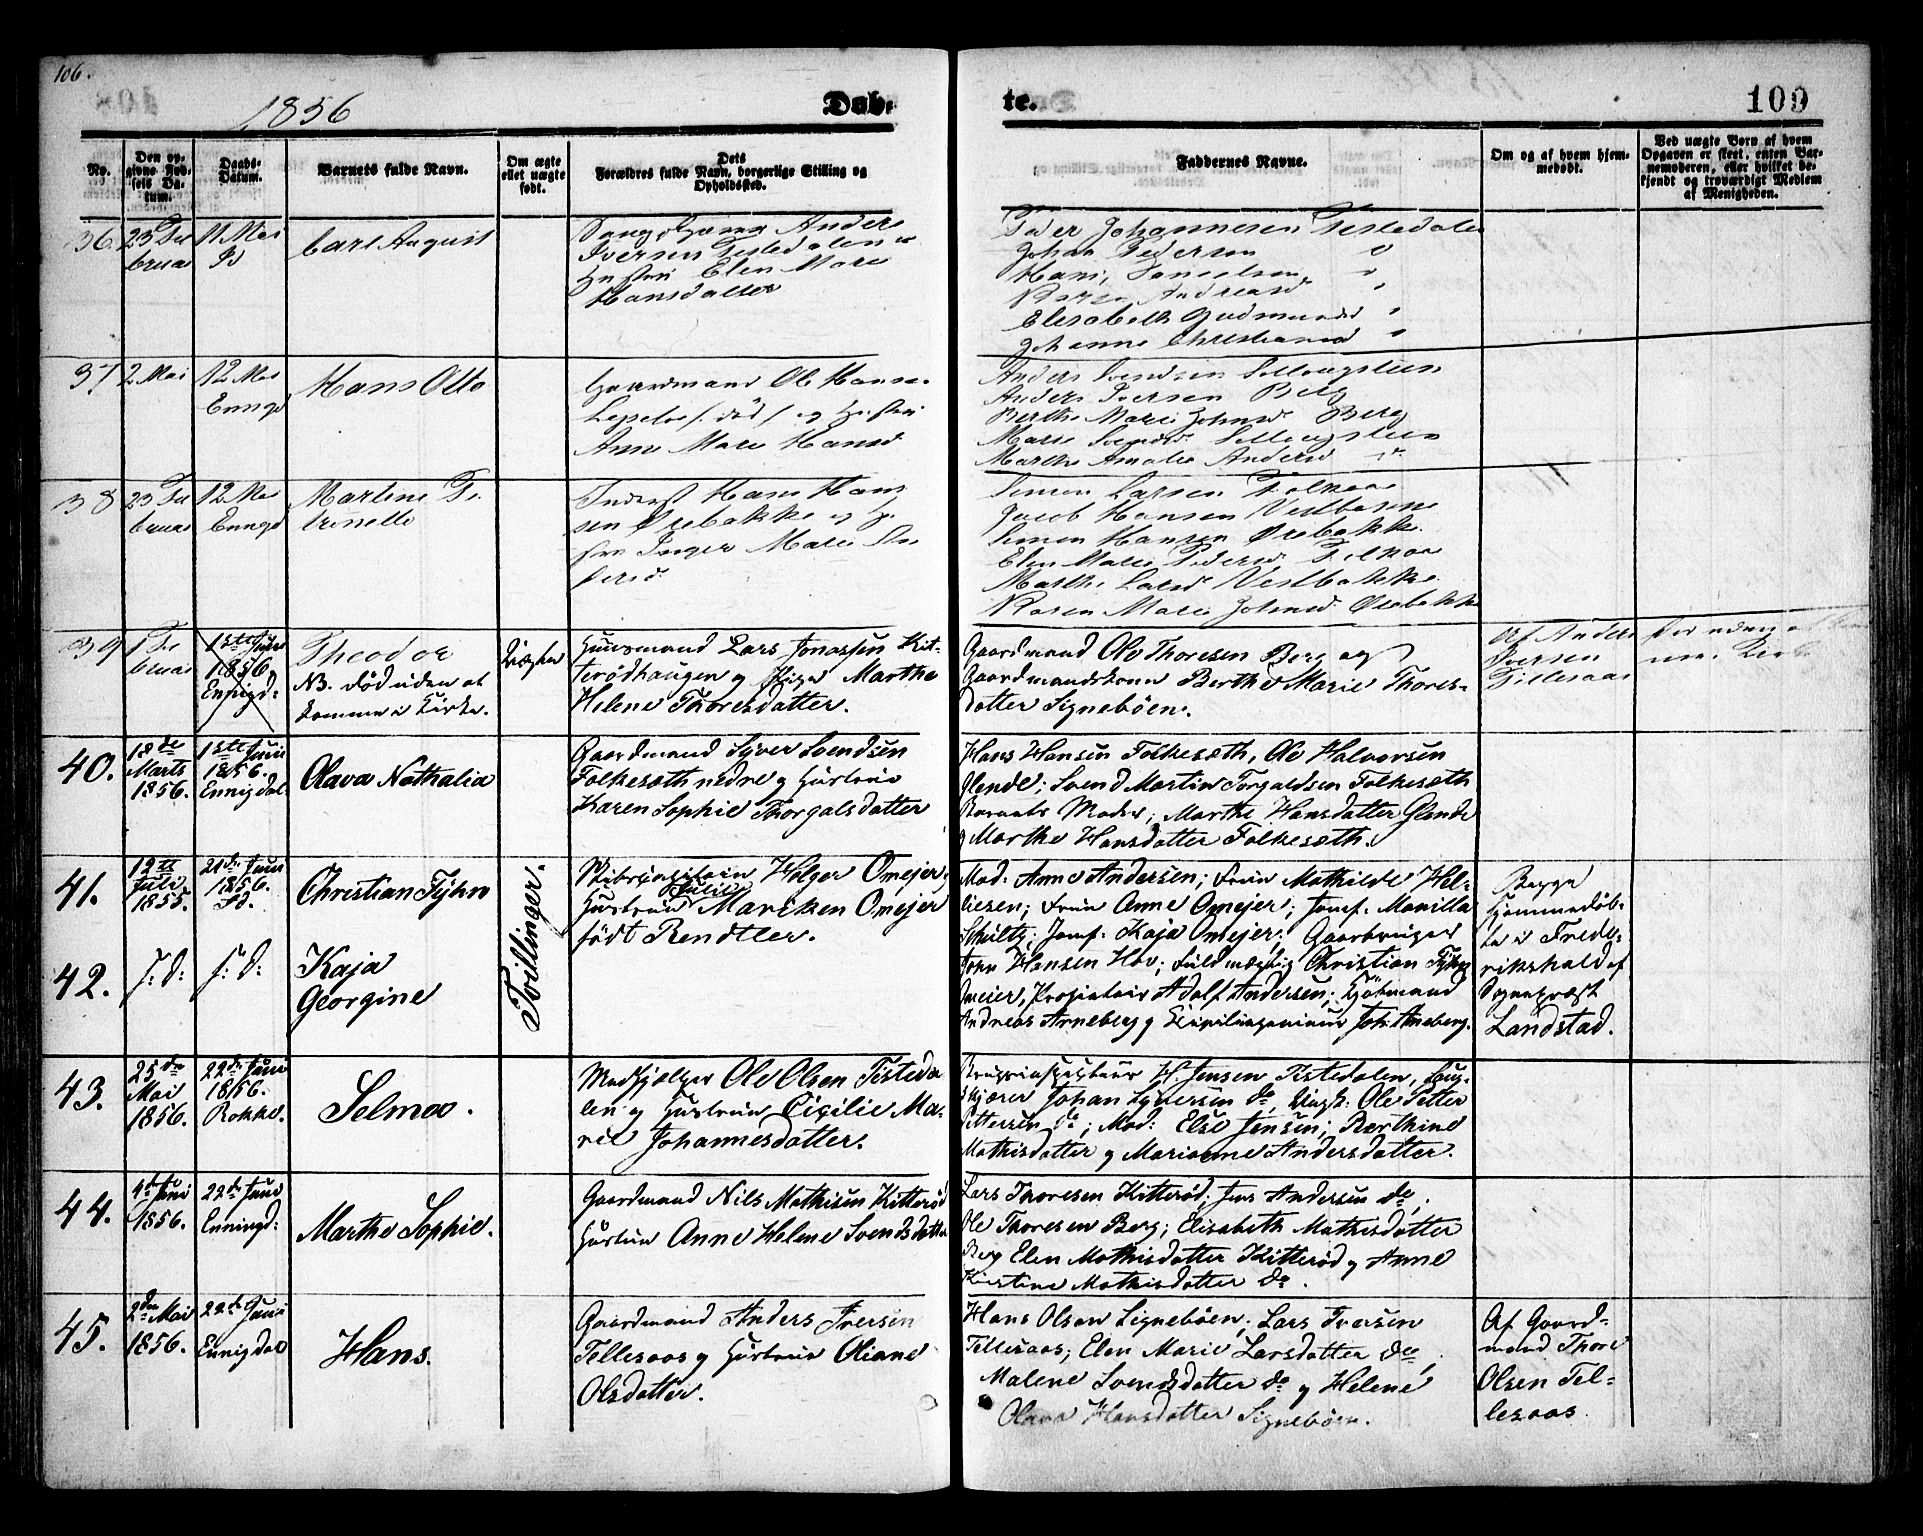 106.
1856
Døb-
te.
109
No.
Den op-
givne Fød-
sels Da-
tum.
Daabs-
Datum.
Barnets fulde Navn.
Om ægte
eller uægte
født.
Dets
Forældres fulde Navn, borgerlige Stilling og
Opholdssted.
Faddernes Navne.
Om og af hvem hjem-
medøbt.
Ved uægte Børn af hvem
Opgaven er skeet, enten Bar-
nemoderen, eller hvilket be-
kjendt og troværdigt Medlem
af Menigheden.
36.
23 Fe
bruar
11 Mai
Id
Carl August
Anders
Iversen Tistedalen
Hustru Elen Mari
Hansdatter
Peder Johannesen Tistedalen
Johan Pedersen
Hans Danielsen
Karen Andreasd
Elisabeth Gudmundsd
Johanne Christiansd
37
2 Mai
12 Mai
Enngd
Hans Otto
Gaardmand Ole Hanse
/ død / og Hustru
Anne Marie Hansd
Anders Svendsen
Anders Iversen Berg
Berthe Marie Johnsd Berg
Marie Svendsd
Marthe Amalie Andersd
38
23 Fe
bruar
12 Mai
Enngd
Martine Pe
trinelle
Inderst Hans Han
sen Ørebakke og H
stru Inger Marie An
dersd
Simen Larsen Folkaa
Jacob Hansen Vestbakke
Simen Hansen Ørebakke
Elen Marie Pedersd
Marthe Larsd Vestbakke
Karen Marie Johnsd Ørebakke
39
1 Fe
bruar
1ste Juni
1856
Ennigd:
Theodor
NB. død uden at
komme i Kirke.
Uægte
Huusmand Lars Jonassen Kit-
terødhaugen og Pige Marthe
Helene Thoresdatter.
Gaardmand Ole Thoresen Berg og
Gaardmandskone Berthe Marie Thores-
datter Signebøen.
Af Anders
Iversen
Tillesaas
40.
18de
Marts
1856.
1ste Juni
1856.
Ennigdal
Olava Nathalia
Gaardmand Syver Svendsen
Folkesæth nedre og Hustrue
Karen Sophie Thorgalsdatter
Hans Hansen Folkesæth, Ole Halvorsen
Glende; Svend Martin Torgaldsen Folkesæth
Barnets Moder; Marthe Hansdatter Glende
og Marthe Hansdatter Folkesæth.
41.
12te
Juli
1855.
21de Juni
1856.
Id.
Christian Tyhn
Tvillinger.
Skibscapitain Holger Omejer,
Hustrue Julie Mariken Omejer
født Rendtler.
Mad: Anne Andersen; Fru Mathilde Hel-
liesen; Fru Anne Omejer; Jomf: Manilla
Schultz; Jomf: Kaja Omejer; Gaarbruger
John Hansen Hov; Fuldmægtig Christian Tyhn
Omeier, Proprietair Adolf Andersen; Kjøbmand
Andreas Arneberg og Joh: Arneberg.
Begge
hjemmedøb-
te i Frede-
rikshald af
Sognepræst
Landstad.
42.
s: d:
s: d:
Kaja
Georgine
43.
25de
Mai
1856.
22de Juni
1856.
Rokke.
Selma.
Madhjælper Ole Olsen Tisteda
len og Hustrue Cicilie Ma-
rie Johannesdatter.
H. Jensen Tistedalen, Sag-
skjærer Johan Syversen do, Ungk: Ole Petter
Pettersen do; Mad: Else Jensen; Berthine
Mathisdatter og Marianne Andersdatter.
44.
4de Juni
1856.
22de Juni
Enningd:
Marthe Sophie.
Gaardmand Nils Mathisen Kitterød
Hustrue Anne Helene Svendsdatter
Lars Thoresen Kitterød; Jens Andersen do,
Ole Thoresen Berg; Elisabeth Mathisdatter
Berg Elen Mathisdatter Kitterød og Anne
Kirstine Mathisdatter do.
45.
2den Mai
1856.
22de Juni
Ennigdal
Hans.
Gaardmand Anders Iversen
Tellesaas og Hustrue Oliane
Olsdatter.
Hans Olsen Signebøen; Lars Iversen
Tellesaas; Elen Marie Larsdatter do,
Malene Svendsdatter do og Helene
Olava Hansdatter Signebøen.
Af Gaard-
mand Thore
Olsen Tel-
lesaas.